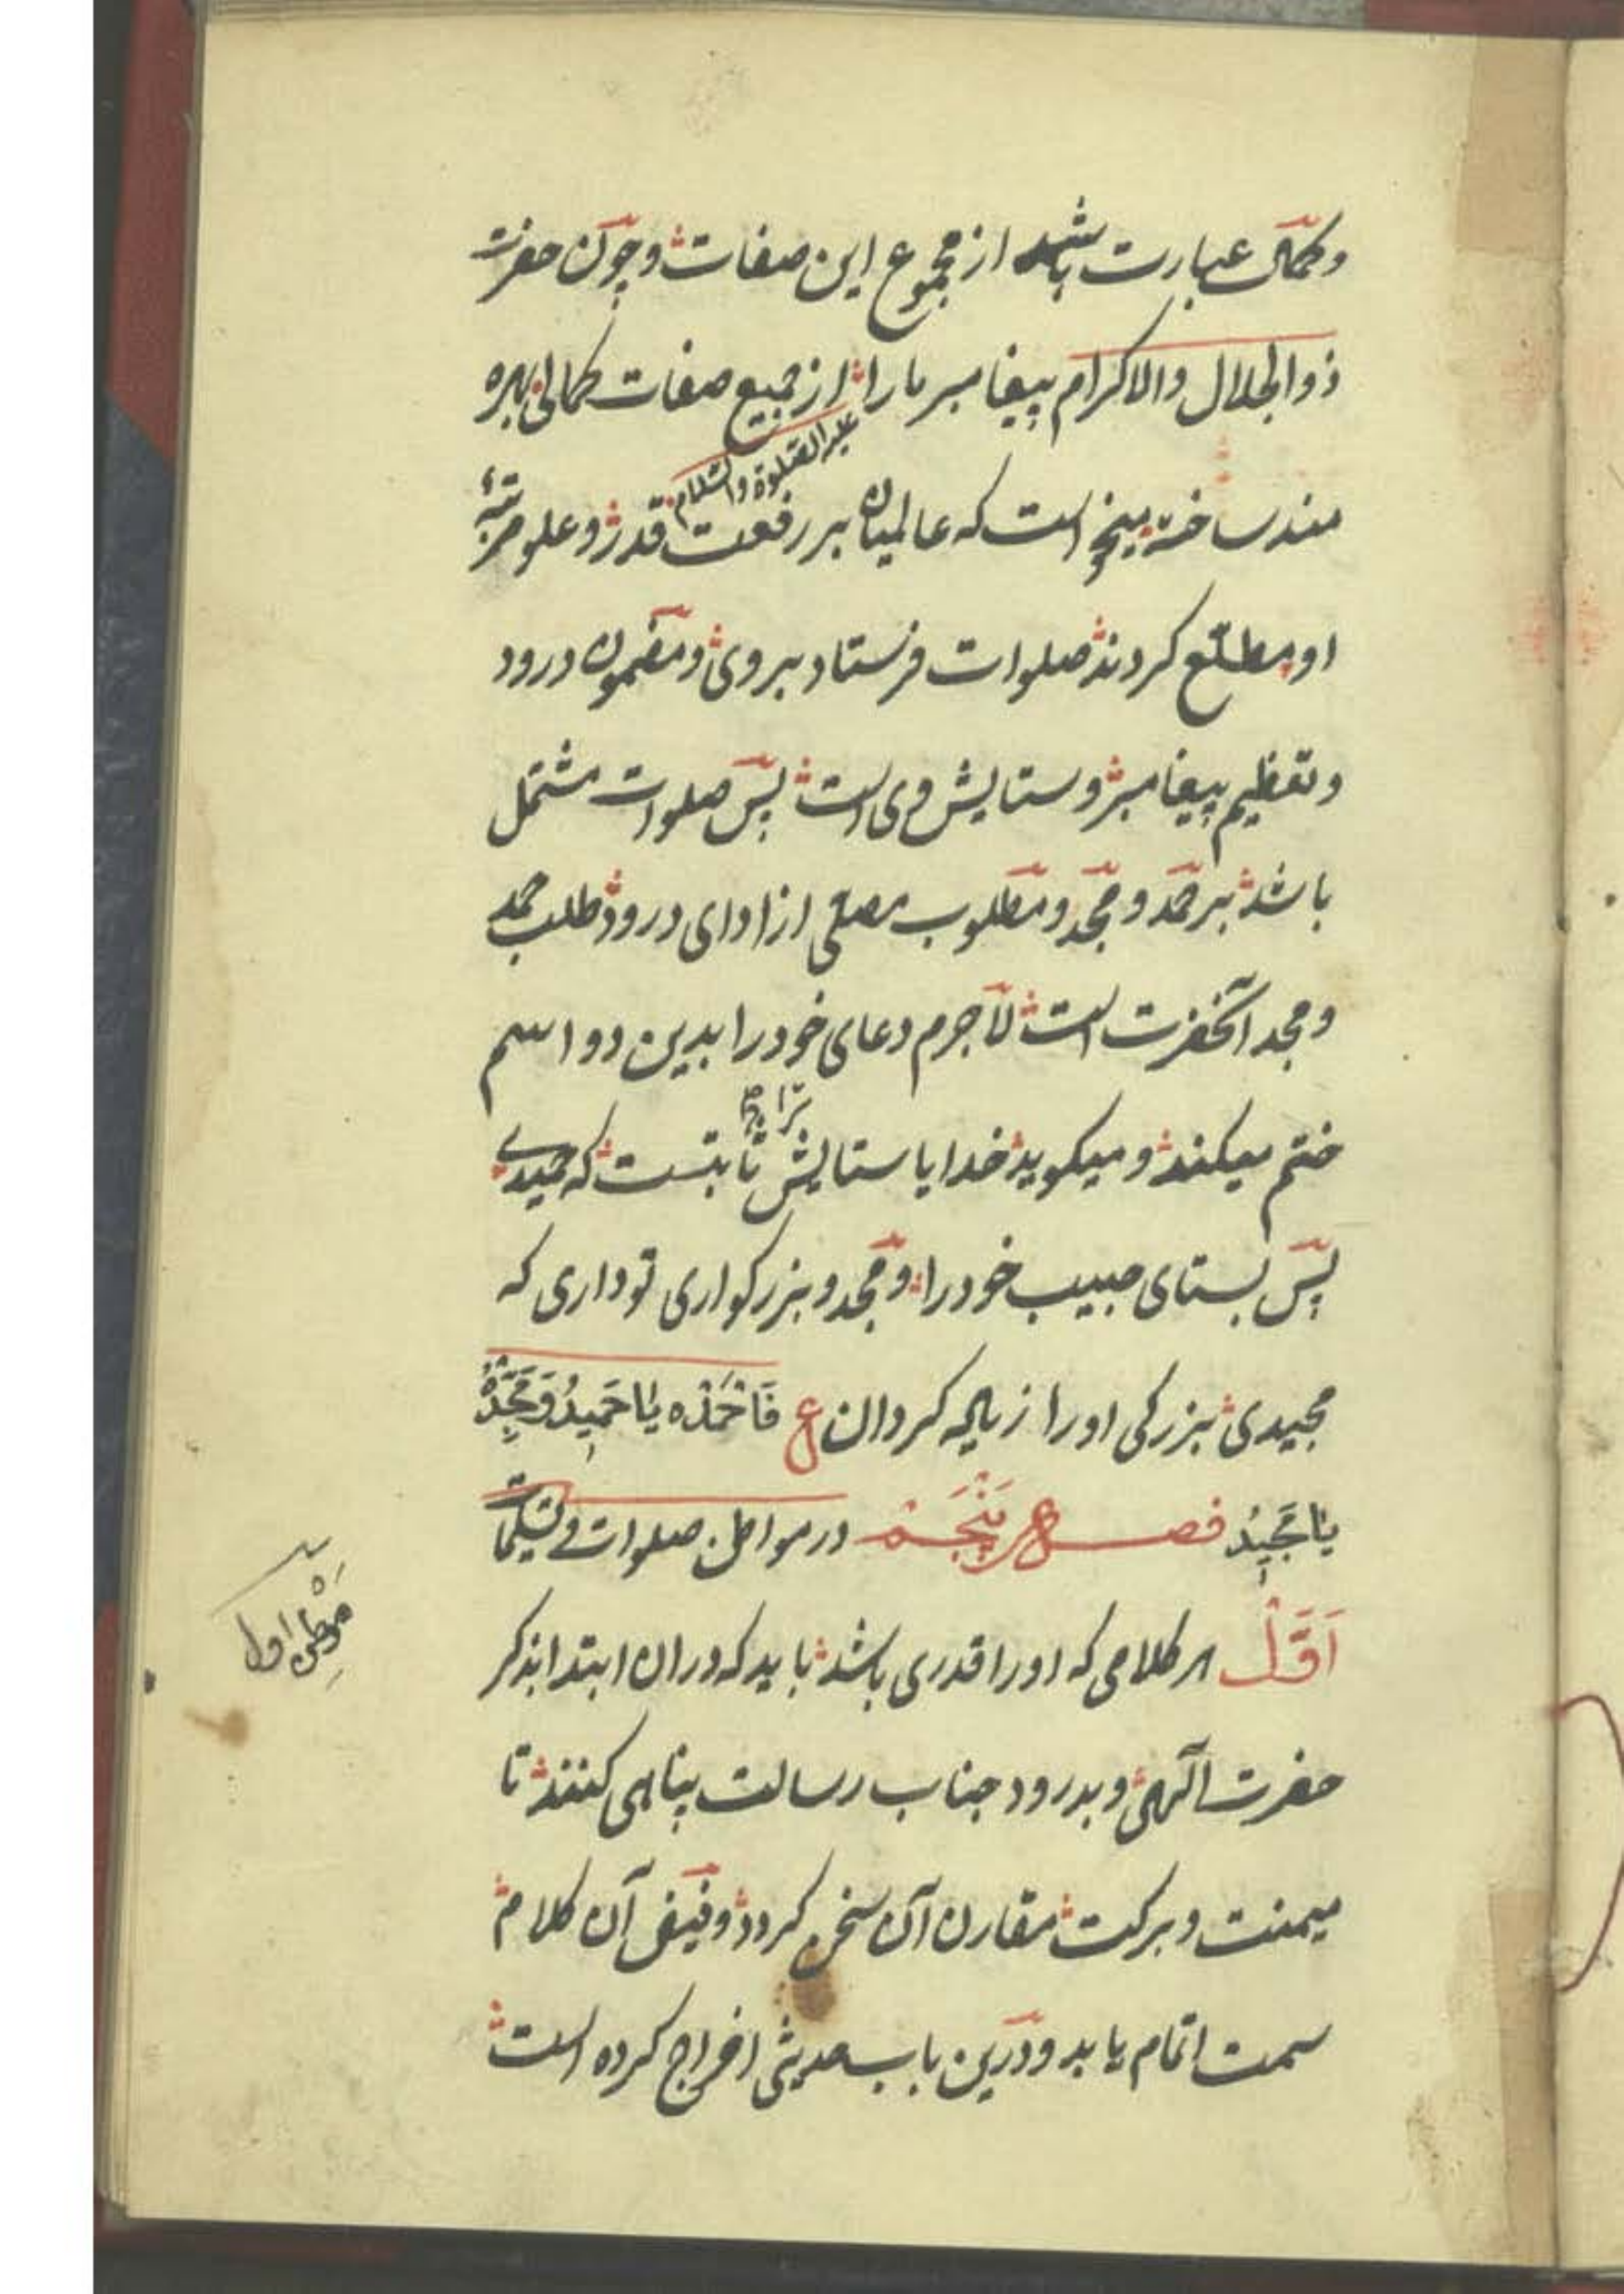 وکمال عبارت باشد از مجموع این صفات وچون حضرت
ذوالجلال والاکرام پیغامبر مارا از جمیع صفات کمالی بهره
علیه الصلوة والسلام
مند ساخته میخواست که عالمیان بر رفعت قدر وعلو مرتبهٔ
او مطلع کردند صلوات فرستاد بروی ومضمون درود
وتعظیم پیغامبر وستایش وی است پس صلوات مشتمل
باشد بر حمد ومجد ومطلوب مصلی از ادای درود طلب حمد
ومجد آنحضرت است لاجرم دعای خود را بدین دو اسم
ختم میکند ومیکوید خدایا ستایش ترا ثابتست که حمیدی
پس بستای حبیب خود را ومجد وبزرکواری تو داری که
مجیدی بزرکی اورا زیاده کردان ع فَاحْمَدْه یٰا حَمِیدُ وَمَجِّدْهُ
یٰا مَجِیدُ فصل پَنْجَم در مواطن صلوات وتسلیمات
اَوَّلْ هر کلامی که اورا قدری باشد باید که دران ابتدا بذکر
مَوْطِنِ اول
حضرت الٓهی وبدرود جناب رسالت پناهی کنند تا
میمنت وبرکت مقارن آن سخن کردد وفیض آن کلام
سمت اتمام یابد ودرین باب حدیثی اخراج کرده است